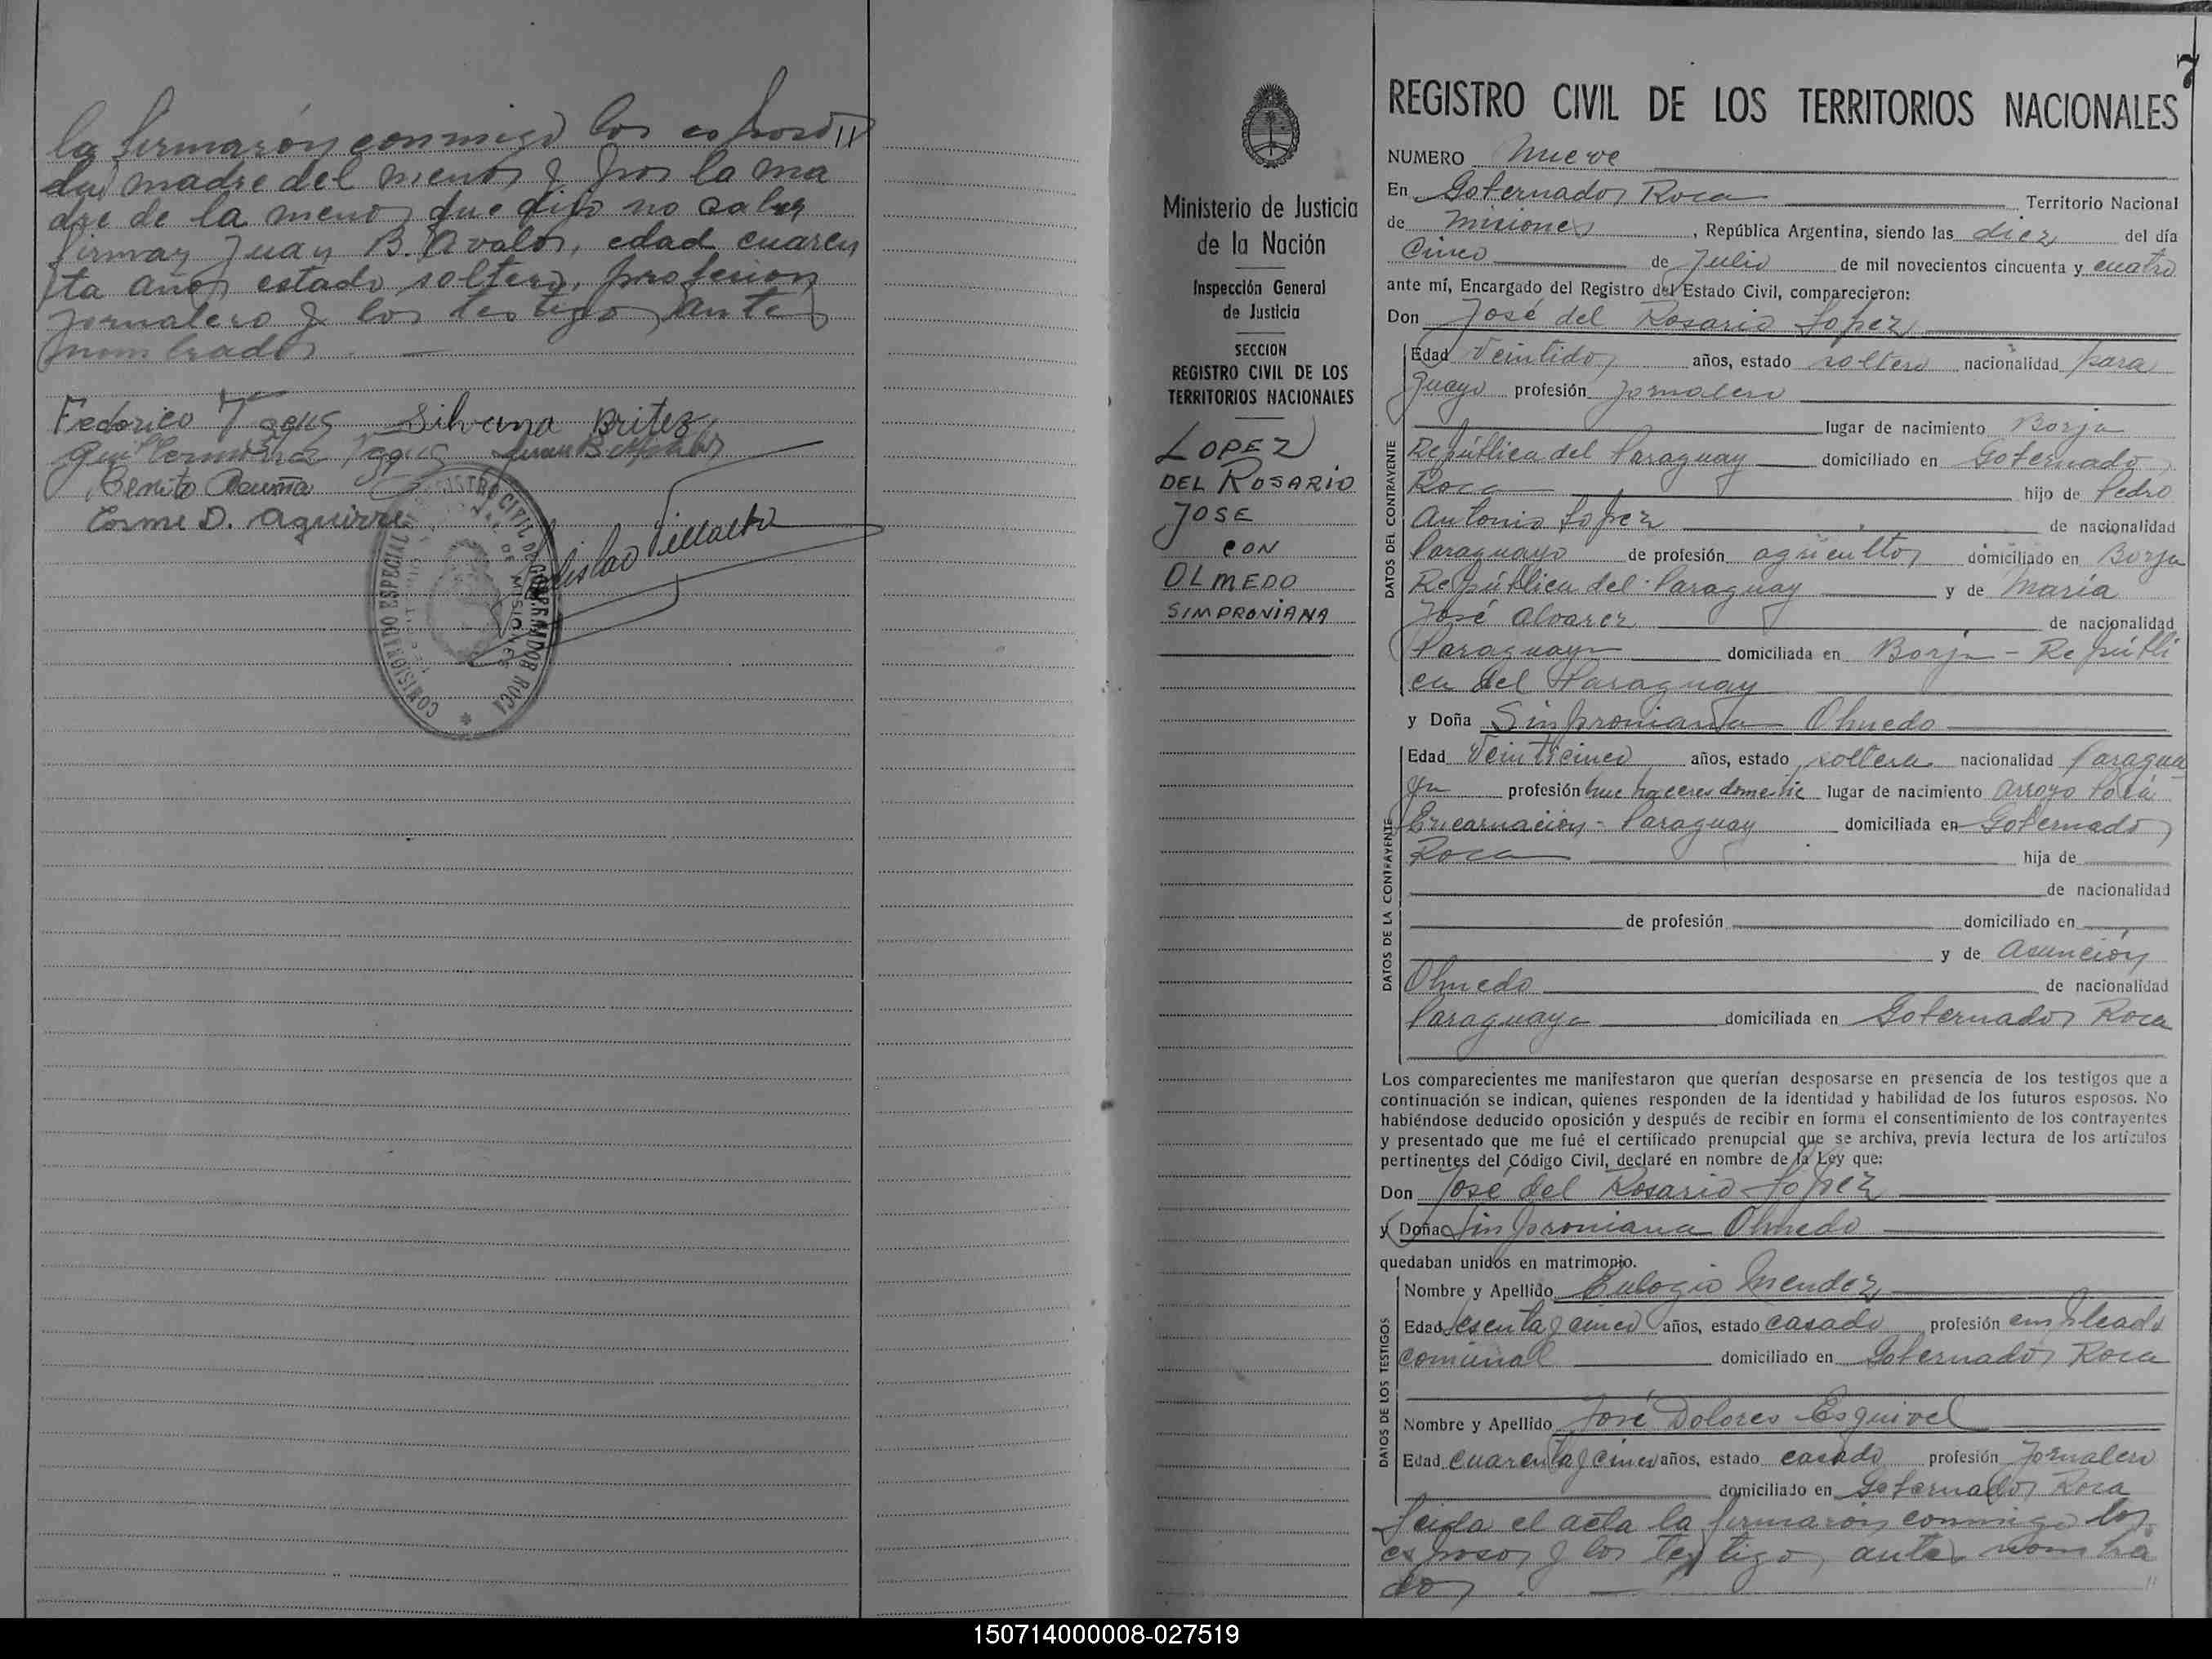 la firmarón conmigo los esposos
la madre del menor y por la ma
dre de la menor que dijo no saber
firmar Juan B. Avalos, edad cuaren
ta años estado soltero, profesion
Jornalero y los testigos antes
nombrados.
Federico Silvana Britez
Benito Acuña
Cosme D. Aguirre
Villalba
COMISIONADO ESPECIAL REGISTRO CIVIL DE GOBERNADOR ROCA
MISIONES
7
Ministerio de Justicia
de la Nación
Inspección General
de Justicia
SECCION
REGISTRO CIVIL DE LOS
TERRITORIOS NACIONALES
LOPEZ
DEL ROSARIO
JOSE
CON
OLMEDO
SIMPRONIANA
REGISTRO CIVIL DE LOS TERRITORIOS NACIONALES
NUMERO Nueve
En Gobernador Roca Territorio Nacional
de Misiones, República Argentina, siendo las diez del día
Cinco de Julio de mil novecientos cincuenta y cuatro
ante mí, Encargado del Registro del Estado Civil, comparecieron:
Don José del Rosario Lopez
DATOS DEL CONTRAYENTE
Edad Veintidos años, estado soltero nacionalidad para
guayo profesión Jornalero
lugar de nacimiento Borja
República del Paraguay domiciliado en Gobernador
Roca hijo de Pedro
Antonio Lopez de nacionalidad
Paraguayo de profesión agricultor domiciliado en Borja
República del Paraguay y de María
José Alvarez de nacionalidad
Paraguaya domiciliada en Borja - Repúbli
ca del Paraguay
y Doña Simproniana Olmedo
DATOS DE LA CONTRAYENTE
Edad Veinticinco años, estado soltera nacionalidad Paragua
ya profesión que haceres domestic lugar de nacimiento Arroyo Porá
Encarnación - Paraguay domiciliada en Gobernador
Roca hija de
de nacionalidad
de profesión domiciliado en
y de Asunción
Olmedo de nacionalidad
Paraguaya domiciliada en Gobernador Roca
Los comparecientes me manifestaron que querían desposarse en presencia de los testigos que a
continuación se indican, quienes responden de la identidad y habilidad de los futuros esposos. No
habiéndose deducido oposición y después de recibir en forma el consentimiento de los contrayentes
y presentado que me fué el certificado prenupcial que se archiva, previa lectura de los artículos
pertinentes del Código Civil, declaré en nombre de la Ley que:
Don José del Rosario Lopez
y Doña Simproniana Olmedo
quedaban unidos en matrimonio.
DATOS DE LOS TESTIGOS
Nombre y Apellido Eulogio Mendez
Edad sesenta y cinco años, estado casado profesión empleado
comunal domiciliado en Gobernador Roca
Nombre y Apellido José Dolores Esquivel
Edad cuarenta y cinco años, estado casado profesión Jornalero
domiciliado en Gobernador Roca
Leida el acta la firmarón conmigo los
esposos y los testigos antes nombra
dos.
150714000008-027519